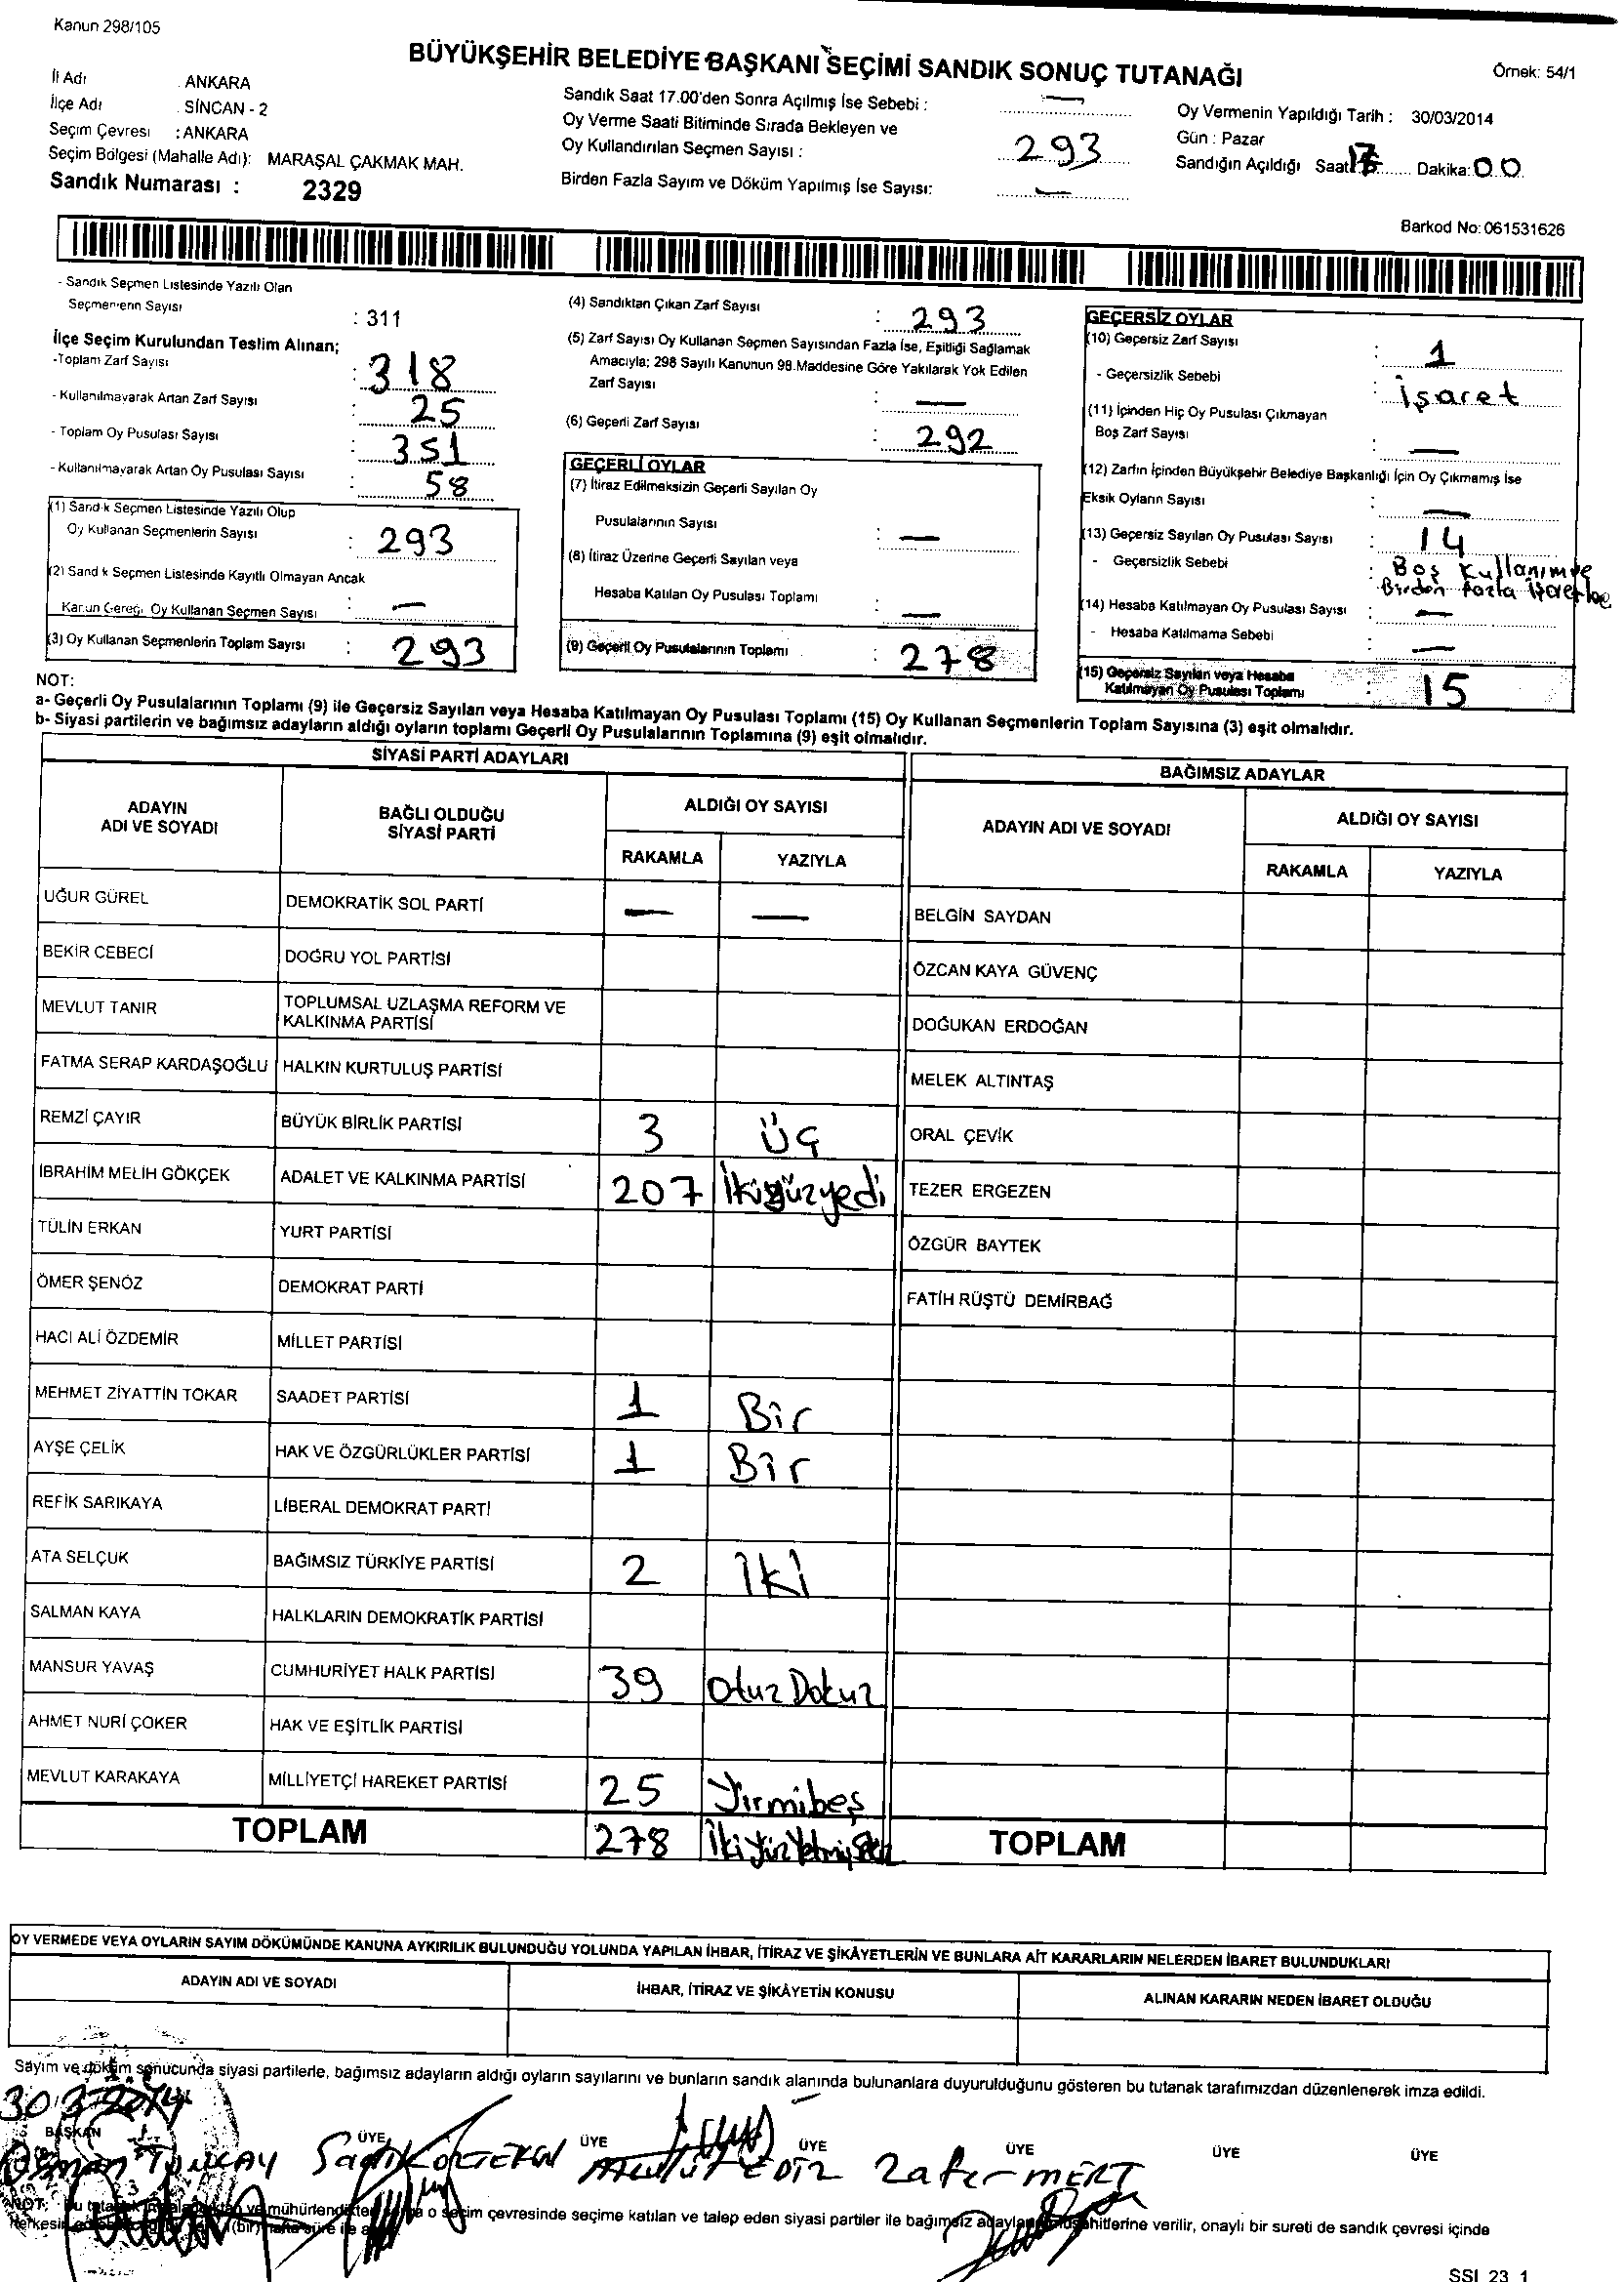 Kanun 298/105
BÜYÜKŞEHİR BELEDİYE BAŞKANI SEÇİMİ SANDIK SONUÇ TUTANAĞI
Örnek: 54/1
İl Adı : ANKARA
İlçe Adı : SİNCAN - 2
Seçim Çevresi : ANKARA
Seçim Bölgesi (Mahalle Adı): MARAŞAL ÇAKMAK MAH.
Sandık Numarası : 2329
Sandık Saat 17.00'den Sonra Açılmış İse Sebebi : —
Oy Verme Saati Bitiminde Sırada Bekleyen ve
Oy Kullandırılan Seçmen Sayısı : 293
Birden Fazla Sayım ve Döküm Yapılmış İse Sayısı: —
Oy Vermenin Yapıldığı Tarih : 30/03/2014
Gün : Pazar
Sandığın Açıldığı Saat: Dakika: 00
Barkod No: 061531626
- Sandık Seçmen Listesinde Yazılı Olan
Seçmenlerin Sayısı : 311
İlçe Seçim Kurulundan Teslim Alınan;
-Toplam Zarf Sayısı : 318
- Kullanılmayarak Artan Zarf Sayısı : 25
- Toplam Oy Pusulası Sayısı : 351
- Kullanılmayarak Artan Oy Pusulası Sayısı : 58
(1) Sandık Seçmen Listesinde Yazılı Olup
Oy Kullanan Seçmenlerin Sayısı : 293
(2) Sandık Seçmen Listesinde Kayıtlı Olmayan Ancak
Kanun Gereği Oy Kullanan Seçmen Sayısı : —
(3) Oy Kullanan Seçmenlerin Toplam Sayısı : 293
(4) Sandıktan Çıkan Zarf Sayısı : 293
(5) Zarf Sayısı Oy Kullanan Seçmen Sayısından Fazla İse, Eşitliği Sağlamak
Amacıyla; 298 Sayılı Kanunun 98.Maddesine Göre Yakılarak Yok Edilen
Zarf Sayısı : —
(6) Geçerli Zarf Sayısı : 292
GEÇERLİ OYLAR
(7) İtiraz Edilmeksizin Geçerli Sayılan Oy
Pusulalarının Sayısı : —
(8) İtiraz Üzerine Geçerli Sayılan veya
Hesaba Katılan Oy Pusulası Toplamı : —
(9) Geçerli Oy Pusulalarının Toplamı : 278
GEÇERSİZ OYLAR
(10) Geçersiz Zarf Sayısı : 1
- Geçersizlik Sebebi : İşaret
(11) İçinden Hiç Oy Pusulası Çıkmayan
Boş Zarf Sayısı : —
(12) Zarfın İçinden Büyükşehir Belediye Başkanlığı İçin Oy Çıkmamış İse
Eksik Oyların Sayısı : —
(13) Geçersiz Sayılan Oy Pusulası Sayısı : 14
- Geçersizlik Sebebi : Boş Kullanım ve
Birden fazla
(14) Hesaba Katılmayan Oy Pusulası Sayısı : —
- Hesaba Katılmama Sebebi : —
(15) Geçersiz Sayılan veya Hesaba
Katılmayan Oy Pusulası Toplamı : 15
NOT:
a- Geçerli Oy Pusulalarının Toplamı (9) ile Geçersiz Sayılan veya Hesaba Katılmayan Oy Pusulası Toplamı (15) Oy Kullanan Seçmenlerin Toplam Sayısına (3) eşit olmalıdır.
b- Siyasi partilerin ve bağımsız adayların aldığı oyların toplamı Geçerli Oy Pusulalarının Toplamına (9) eşit olmalıdır.
SİYASİ PARTİ ADAYLARI
ADAYIN ADI VE SOYADI BAĞLI OLDUĞU SİYASİ PARTİ ALDIĞI OY SAYISI
RAKAMLA YAZIYLA
UĞUR GÜREL DEMOKRATİK SOL PARTİ — —
BEKİR CEBECİ DOĞRU YOL PARTİSİ
MEVLUT TANIR TOPLUMSAL UZLAŞMA REFORM VE KALKINMA PARTİSİ
FATMA SERAP KARDAŞOĞLU HALKIN KURTULUŞ PARTİSİ
REMZİ ÇAYIR BÜYÜK BİRLİK PARTİSİ 3 Üç
İBRAHİM MELİH GÖKÇEK ADALET VE KALKINMA PARTİSİ 207 İkiyüzyedi
TÜLİN ERKAN YURT PARTİSİ
ÖMER ŞENÖZ DEMOKRAT PARTİ
HACI ALİ ÖZDEMİR MİLLET PARTİSİ
MEHMET ZİYATTİN TOKAR SAADET PARTİSİ 1 Bir
AYŞE ÇELİK HAK VE ÖZGÜRLÜKLER PARTİSİ 1 Bir
REFİK SARIKAYA LİBERAL DEMOKRAT PARTİ
ATA SELÇUK BAĞIMSIZ TÜRKİYE PARTİSİ 2 İki
SALMAN KAYA HALKLARIN DEMOKRATİK PARTİSİ
MANSUR YAVAŞ CUMHURİYET HALK PARTİSİ 39 Otuz Dokuz
AHMET NURİ ÇOKER HAK VE EŞİTLİK PARTİSİ
MEVLUT KARAKAYA MİLLİYETÇİ HAREKET PARTİSİ 25 Yirmibeş
TOPLAM 278
BAĞIMSIZ ADAYLAR
ADAYIN ADI VE SOYADI ALDIĞI OY SAYISI
RAKAMLA YAZIYLA
BELGİN SAYDAN
ÖZCAN KAYA GÜVENÇ
DOĞUKAN ERDOĞAN
MELEK ALTINTAŞ
ORAL ÇEVİK
TEZER ERGEZEN
ÖZGÜR BAYTEK
FATİH RÜŞTÜ DEMİRBAĞ
TOPLAM
OY VERMEDE VEYA OYLARIN SAYIM DÖKÜMÜNDE KANUNA AYKIRILIK BULUNDUĞU YOLUNDA YAPILAN İHBAR, İTİRAZ VE ŞİKÂYETLERİN VE BUNLARA AİT KARARLARIN NELERDEN İBARET BULUNDUKLARI
ADAYIN ADI VE SOYADI İHBAR, İTİRAZ VE ŞİKÂYETİN KONUSU ALINAN KARARIN NEDEN İBARET OLDUĞU
Sayım ve döküm sonucunda siyasi partilerle, bağımsız adayların aldığı oyların sayılarını ve bunların sandık alanında bulunanlara duyurulduğunu gösteren bu tutanak tarafımızdan düzenlenerek imza edildi.
30.3.2014
BAŞKAN ÜYE ÜYE ÜYE ÜYE ÜYE ÜYE
Zafer MERT
NOT: Bu o seçim çevresinde seçime katılan ve talep eden siyasi partiler ile bağımsız verilir, onaylı bir sureti de sandık çevresi içinde
SSI 23 1